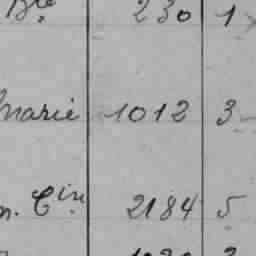 Bte. 230 1
marie 1012 3
n. Cin. 2184 5